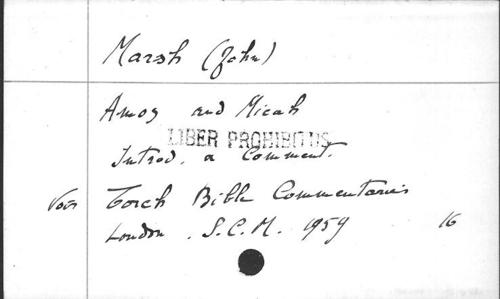 Marsh (John)
Amos and Micah
LIBER PROHIBITUS
Introd. a Comment.
Torch Bible Commentaries
London. S.C.M. 1959 16